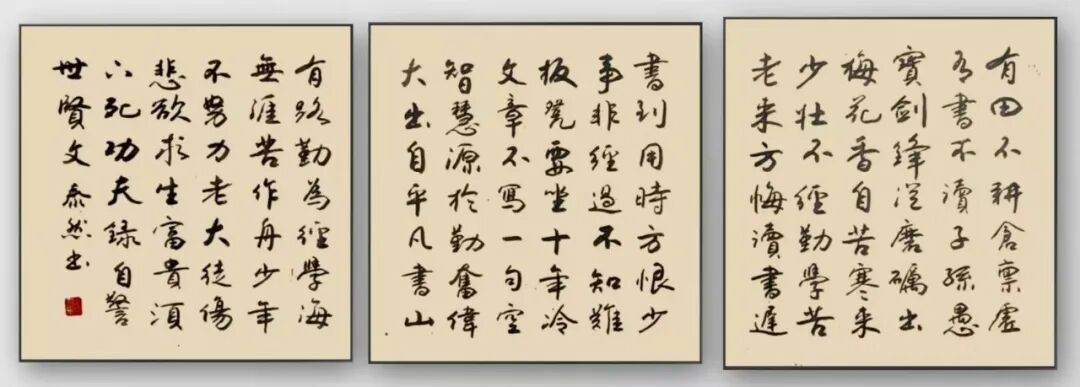 有田不耕倉禀虛
有書不讀子孫愚
寶劍鋒從磨礪出
梅花香自苦寒来
少壯不經勤學苦
老来方悔讀書遲
書到用時方恨少
事非經過不知難
板凳要坐十年冷
文章不寫一句空
智慧源於勤奮偉
大出自平凡書山
有路勤為徑學海
無涯苦作舟少年
不努力老大徒傷
悲欲求生富貴須
下死功夫錄自警
世賢文 泰然书